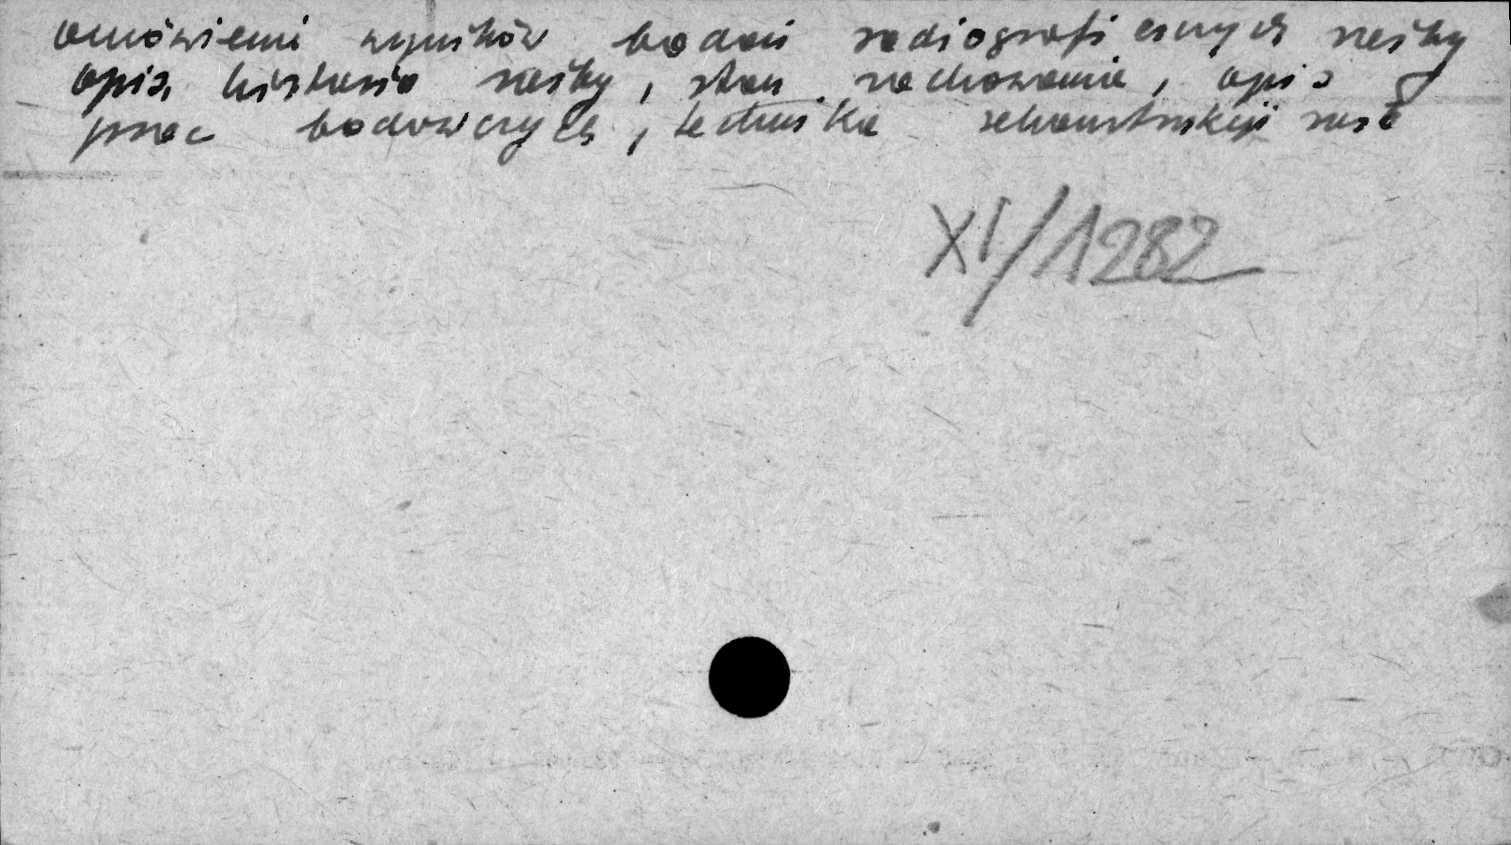 omówienie wyników badań radiograficznych rzeźby
opis, historia rzeźby, stan zachowania, opis
prac badawczych, technika rekonstrukcji
XI/1282